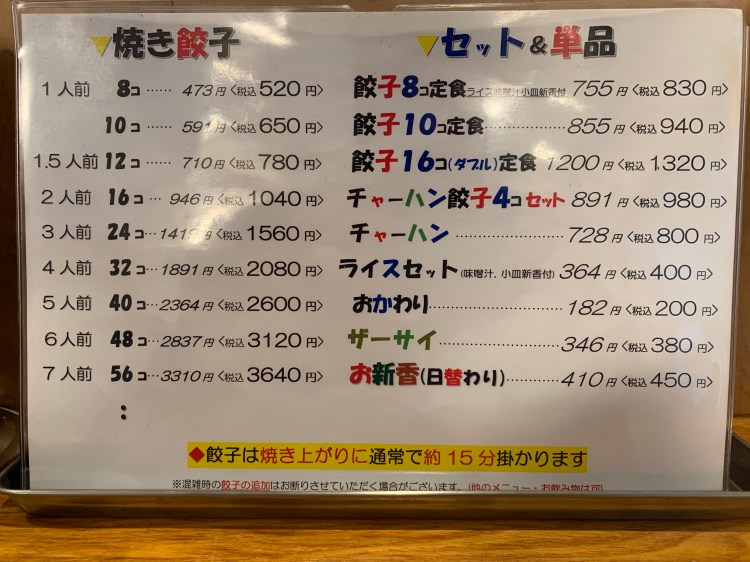 ▼焼き餃子
1人前 8コ…… 473円〈税込520円〉
10コ…… 591円〈税込650円〉
1.5人前 12コ… 710円〈税込780円〉
2人前 16コ… 946円〈税込1040円〉
3人前 24コ… 1418円〈税込1560円〉
4人前 32コ… 1891円〈税込2080円〉
5人前 40コ… 2364円〈税込2600円〉
6人前 48コ… 2837円〈税込3120円〉
7人前 56コ… 3310円〈税込3640円〉
:
▼セット&単品
餃子8コ定食ライス味噌汁小皿新香付 755円〈税込830円〉
餃子10コ定食……………… 855円〈税込940円〉
餃子16コ(ダブル)定食 1200円〈税込1,320円〉
チャーハン餃子4コセット 891円〈税込980円〉
チャーハン……………… 728円〈税込800円〉
ライスセット(味噌汁、小皿新香付) 364円〈税込400円〉
おかわり……………… 182円〈税込200円〉
ザーサイ……………… 346円〈税込380円〉
お新香(日替わり)………… 410円〈税込450円〉
◆餃子は焼き上がりに通常で約15分掛かります
※混雑時の餃子の追加はお断りさせていただく場合がございます。(他のメニュー・お飲み物は可)